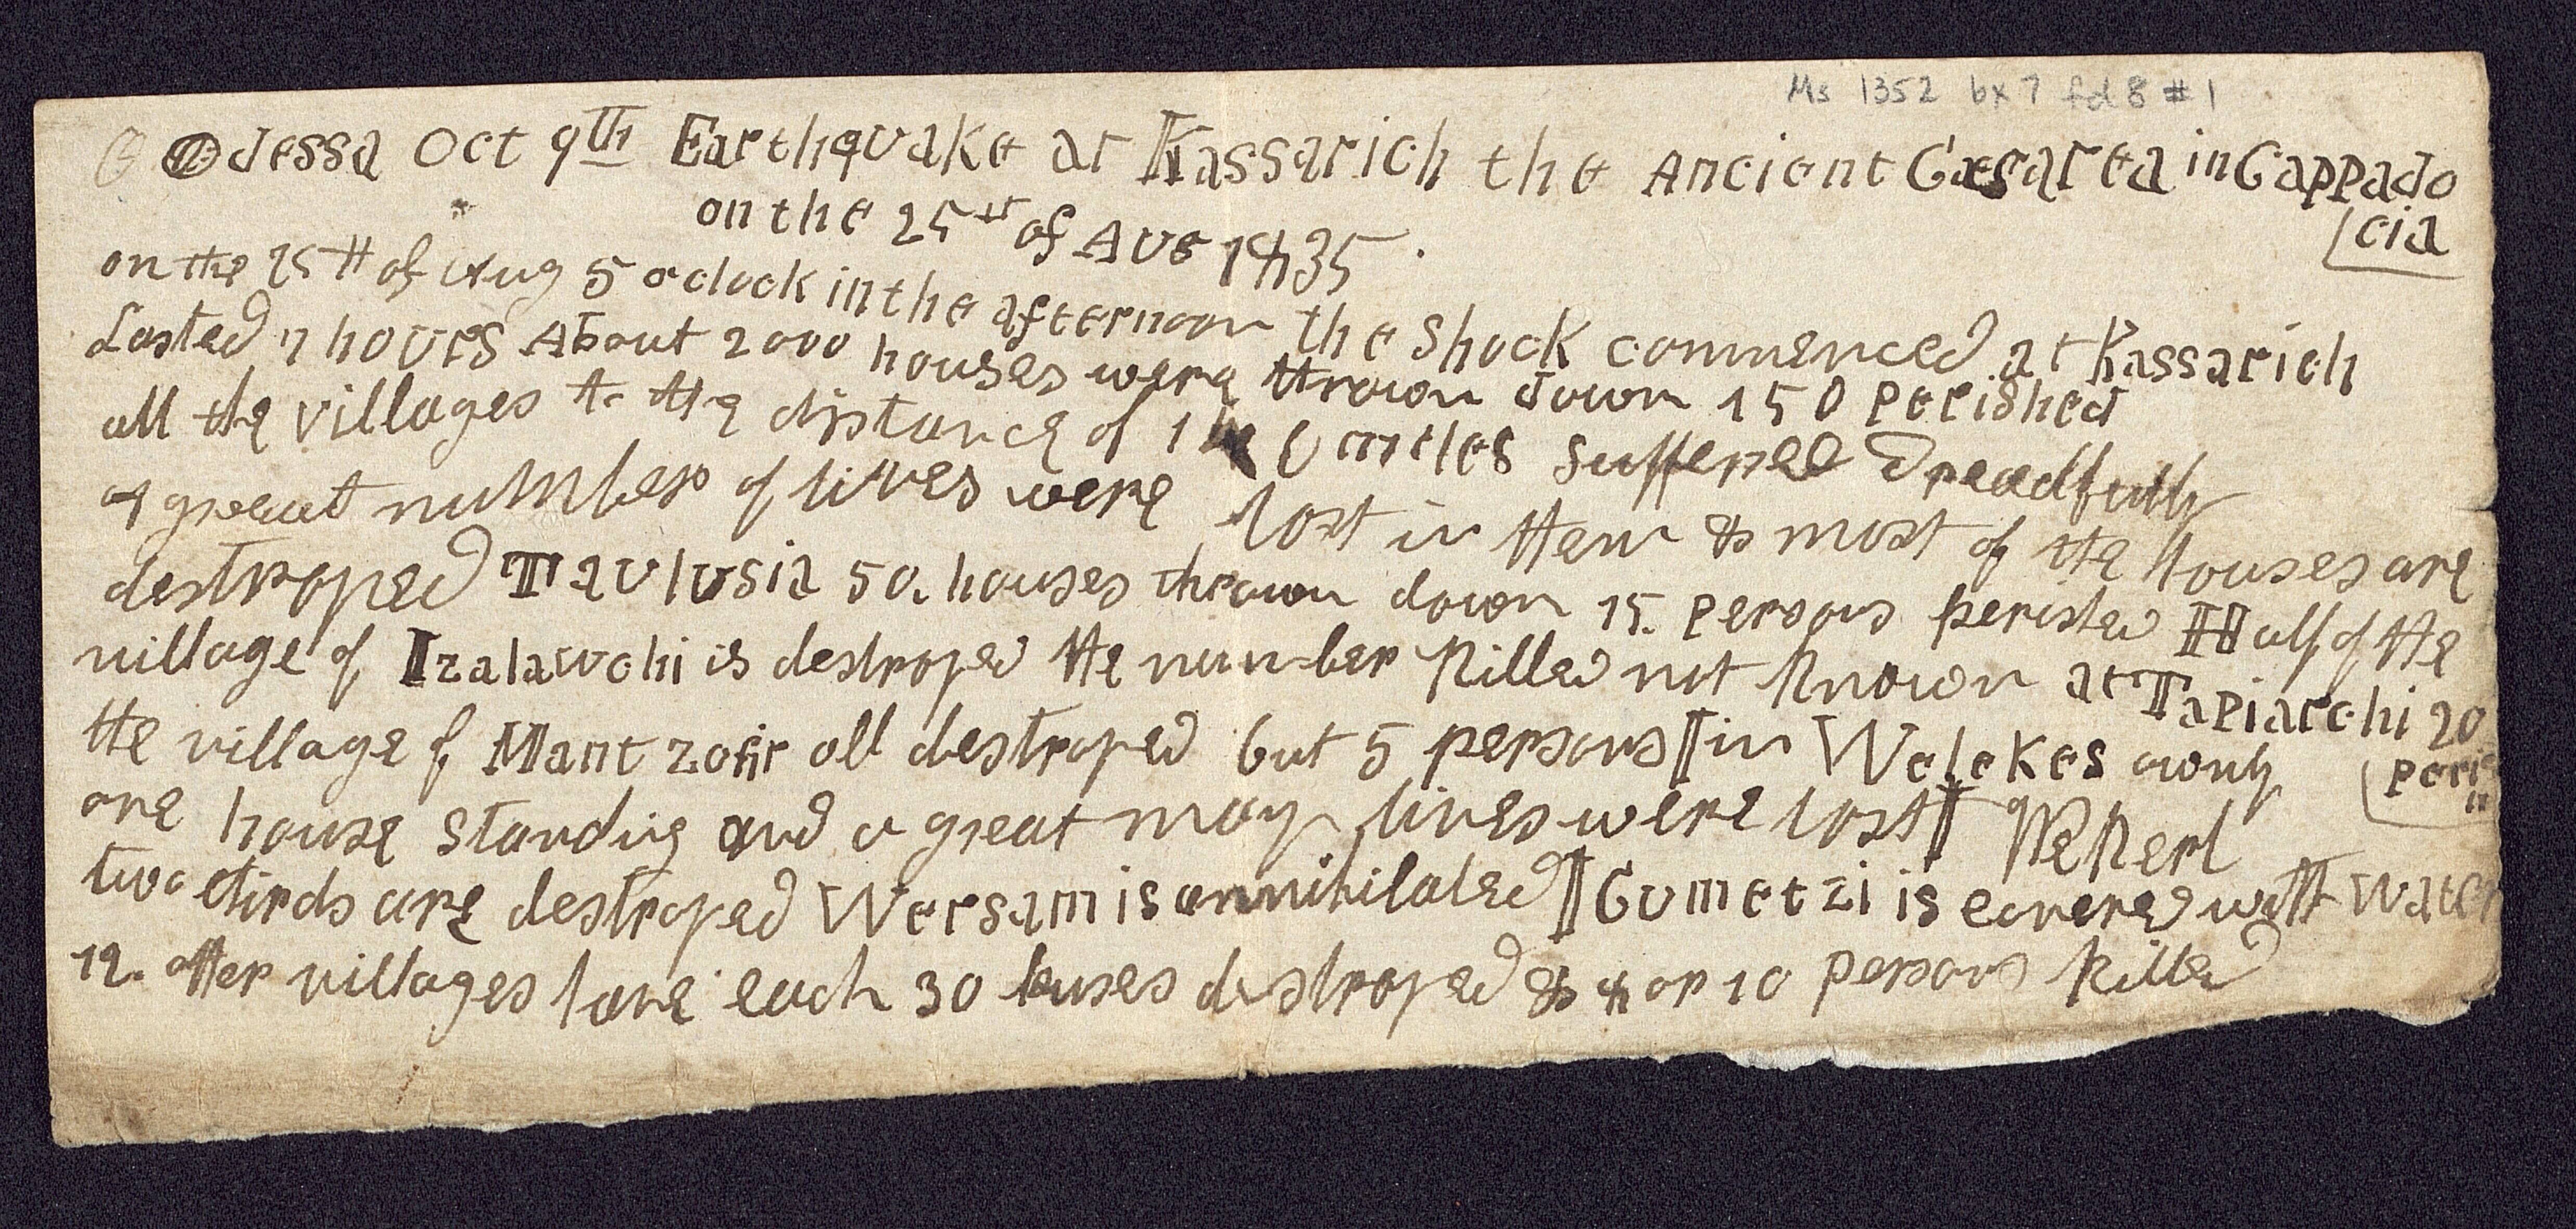 Ms 1352 bx 7 fd 8 #1
Odessa Oct 9th Earthquake at Kassarieh the Ancient Cæsarea in Cappado
cia
on the 25th of Aug 1835.
on the 25th of Aug 5 oclock in the afternoon the Shock commenced at Kassarieh
Lasted 7 hours About 2000 houses were thrown down 150 perished
all the villages to the distance of miles suffered Dreadfully
a great number of lives were lost in them & most of the houses are
destroyed Tavlusia 50. houses thrown down 15. persons perished Half of the
village of Izalawchi is destroyed the number Killed not Known at Tapiarchi 20
peris
the village of Mantzofir all destroyed but 5 persons in Welekes owny
one house standing and a great many lives were lost Wekerl
two thirds are destroyed Wersam is annihilated Cumetzi is covered with Water
12. other villages have each 30 houses destroyed & 8 or 10 persons Killed